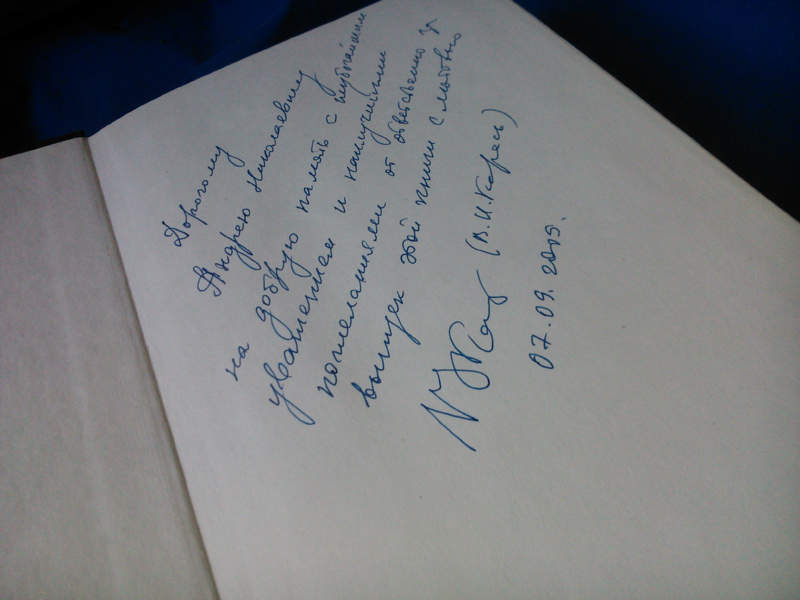 Дорогому
Андрею Николаевичу
на добрую память с глубочайшим
уважением и наилучшими
пожеланиями от ответственного за
выпуск этой книги с любовью
(В.И. Карась)
07.09.2015.